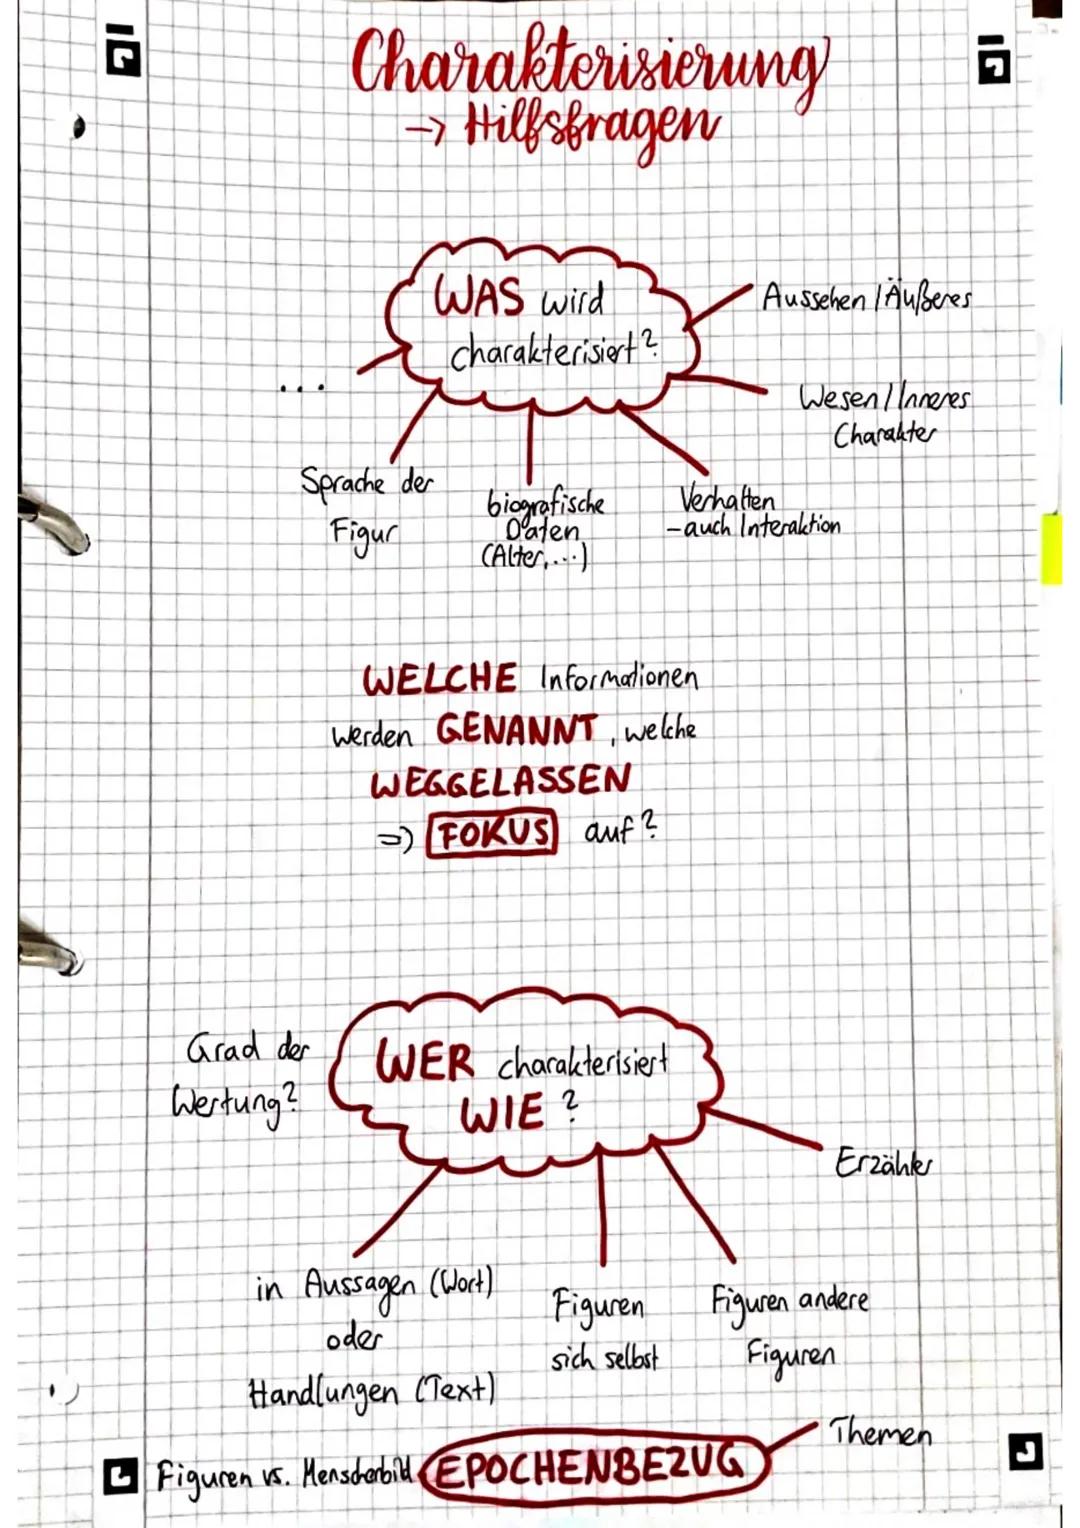 Charakterisierung
→ Hilfsfragen
WAS wird
charakterisiert?
Aussehen / Äußeres
Wesen / Inneres
Charakter
...
Sprache der
Figur
biografische
Daten
(Alter,...)
Verhalten
- auch Interaktion
WELCHE Informationen
werden GENANNT, welche
WEGGELASSEN
=> FOKUS auf?
Grad der
Wertung?
WER charakterisiert
WIE?
Erzähler
in Aussagen (Wort)
oder
Handlungen (Text)
Figuren
sich selbst
Figuren andere
Figuren
Themen
Figuren vs. Menschenbild EPOCHENBEZUG